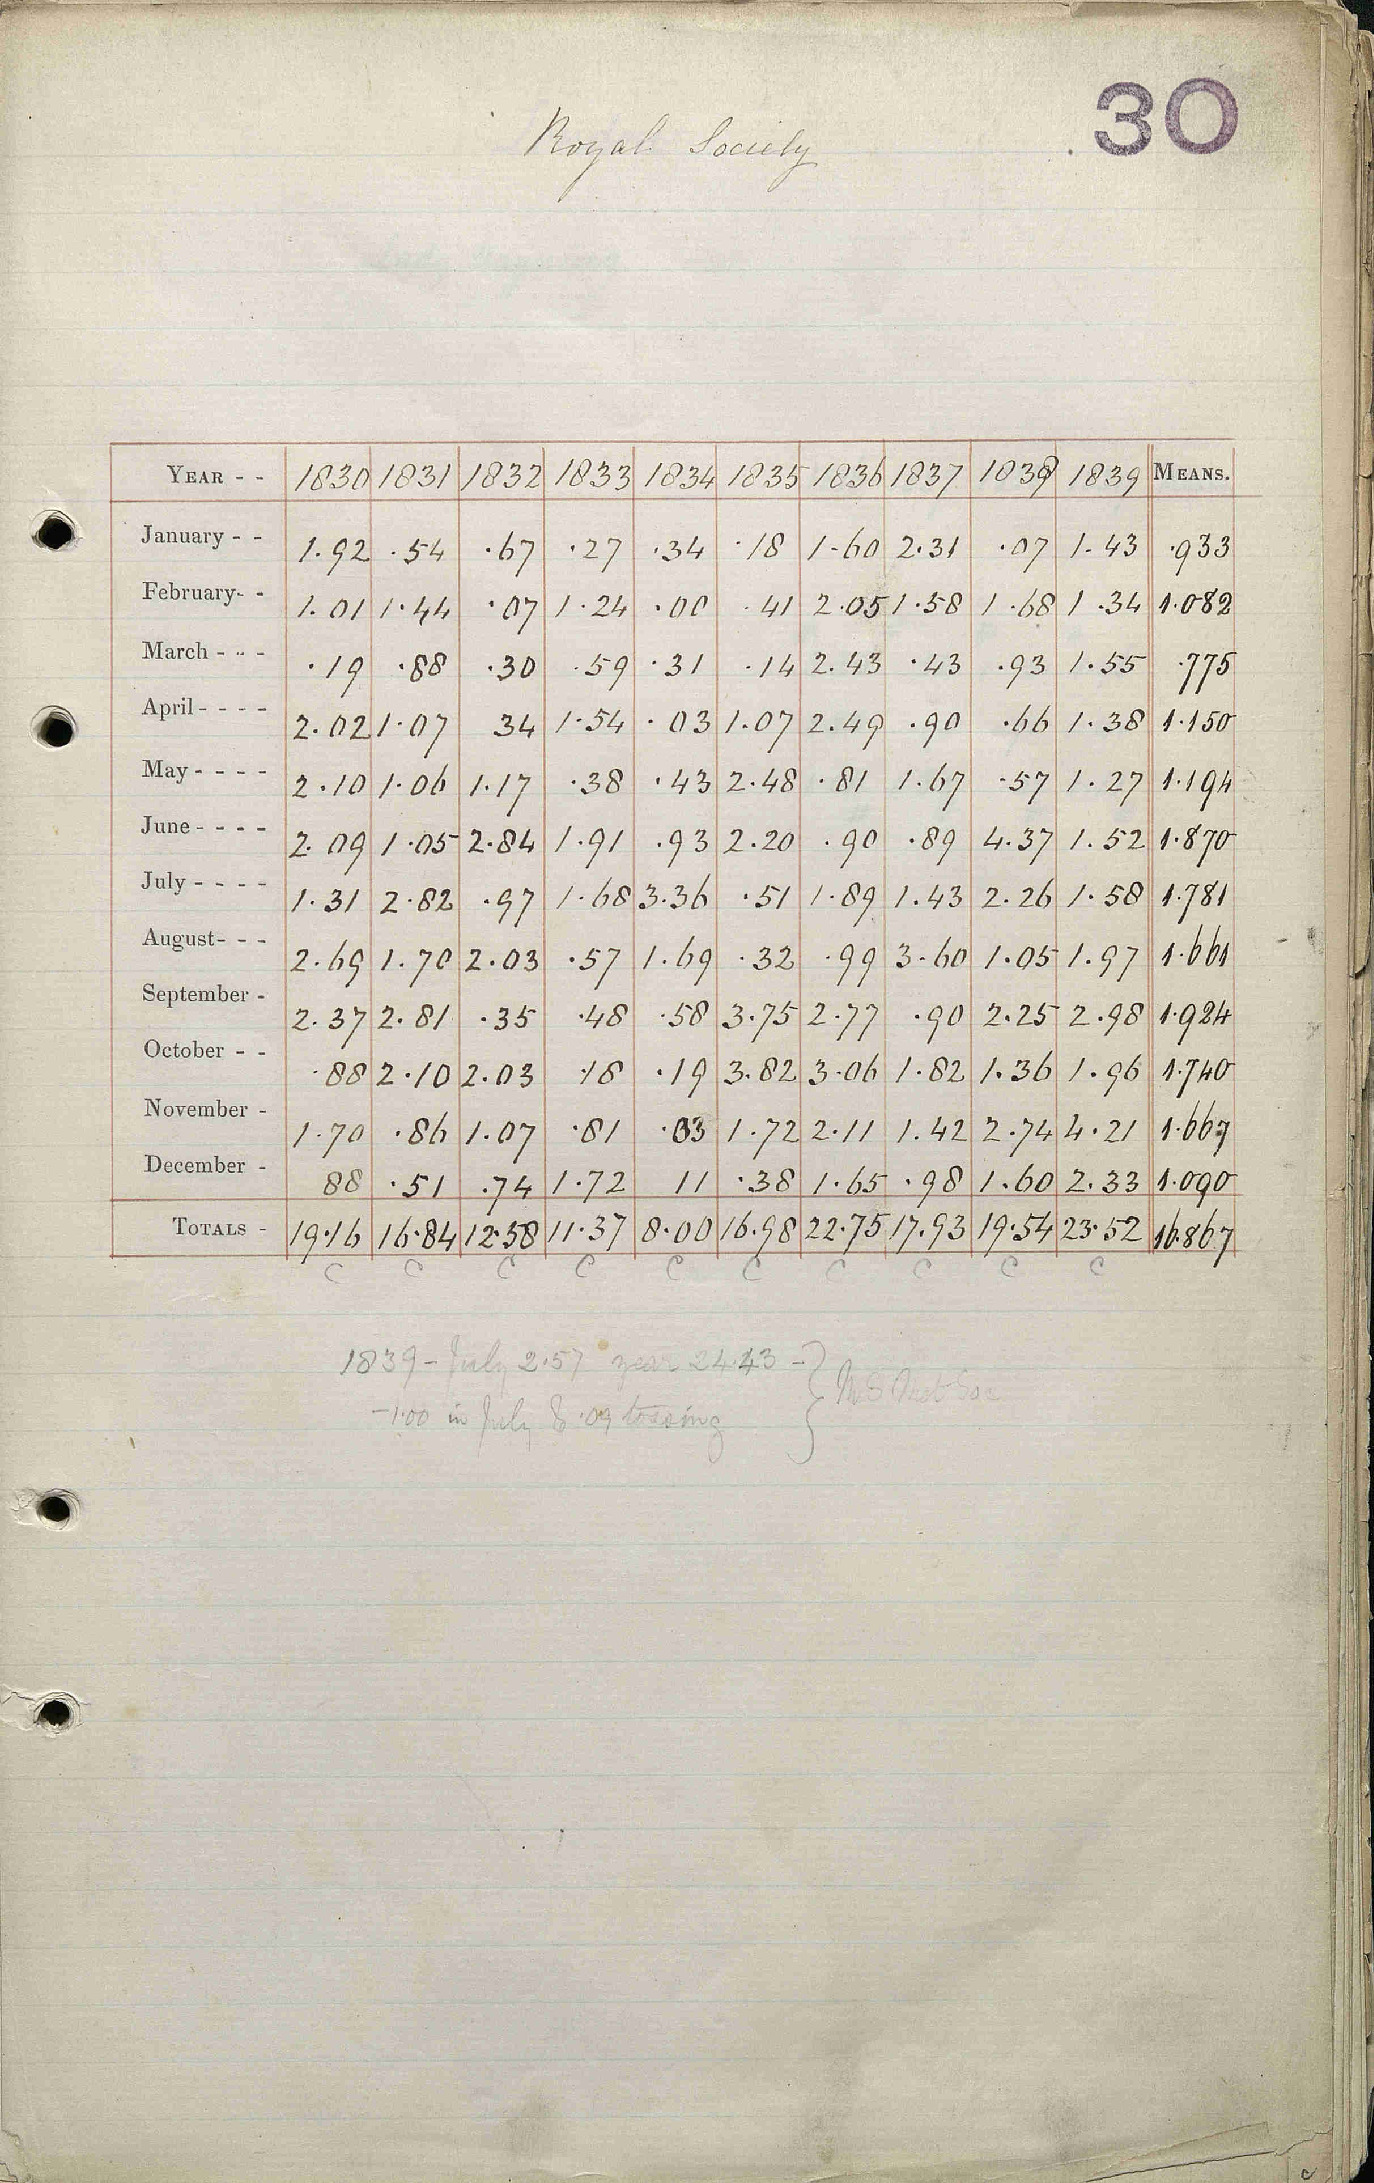 30
Royal Society
YEAR - - 1830 1831 1832 1833 1834 1835 1836 1837 1838 1839 MEANS.
January - - 1.92 .54 .67 .27 .34 .18 1.60 2.31 .07 1.43 .933
February- - 1.01 1.44 .07 1.24 .00 .41 2.05 1.58 1.68 1.34 1.082
March - - - .19 .88 .30 .59 .31 .14 2.43 .43 .93 1.55 .775
April - - - - 2.02 1.07 34 1.54 .03 1.07 2.49 .90 .66 1.38 1.150
May - - - - 2.10 1.06 1.17 .38 .43 2.48 .81 1.67 .57 1.27 1.194
June - - - - 2.09 1.05 2.84 1.91 .93 2.20 .90 .89 4.37 1.52 1.870
July - - - - 1.31 2.82 .97 1.68 3.36 .51 1.89 1.43 2.26 1.58 1.781
August- - - 2.69 1.70 2.03 .57 1.69 .32 .99 3.60 1.05 1.97 1.661
September - 2.37 2.81 .35 .48 .58 3.75 2.77 .90 2.25 2.98 1.924
October - - .88 2.10 2.03 .18 .19 3.82 3.06 1.82 1.36 1.96 1.740
November - 1.70 .86 1.07 .81 .03 1.72 2.11 1.42 2.74 4.21 1.667
December - 88 .51 .74 1.72 11 .38 1.65 .98 1.60 2.33 1.090
TOTALS - 19.16 16.84 12.58 11.37 8.00 16.98 22.75 17.93 19.54 23.52 16.867
C C C C C C C C C C
1839 - July 2.57 year 24.43 - } MS Met Soc
-1.00 in July & .09 tossing